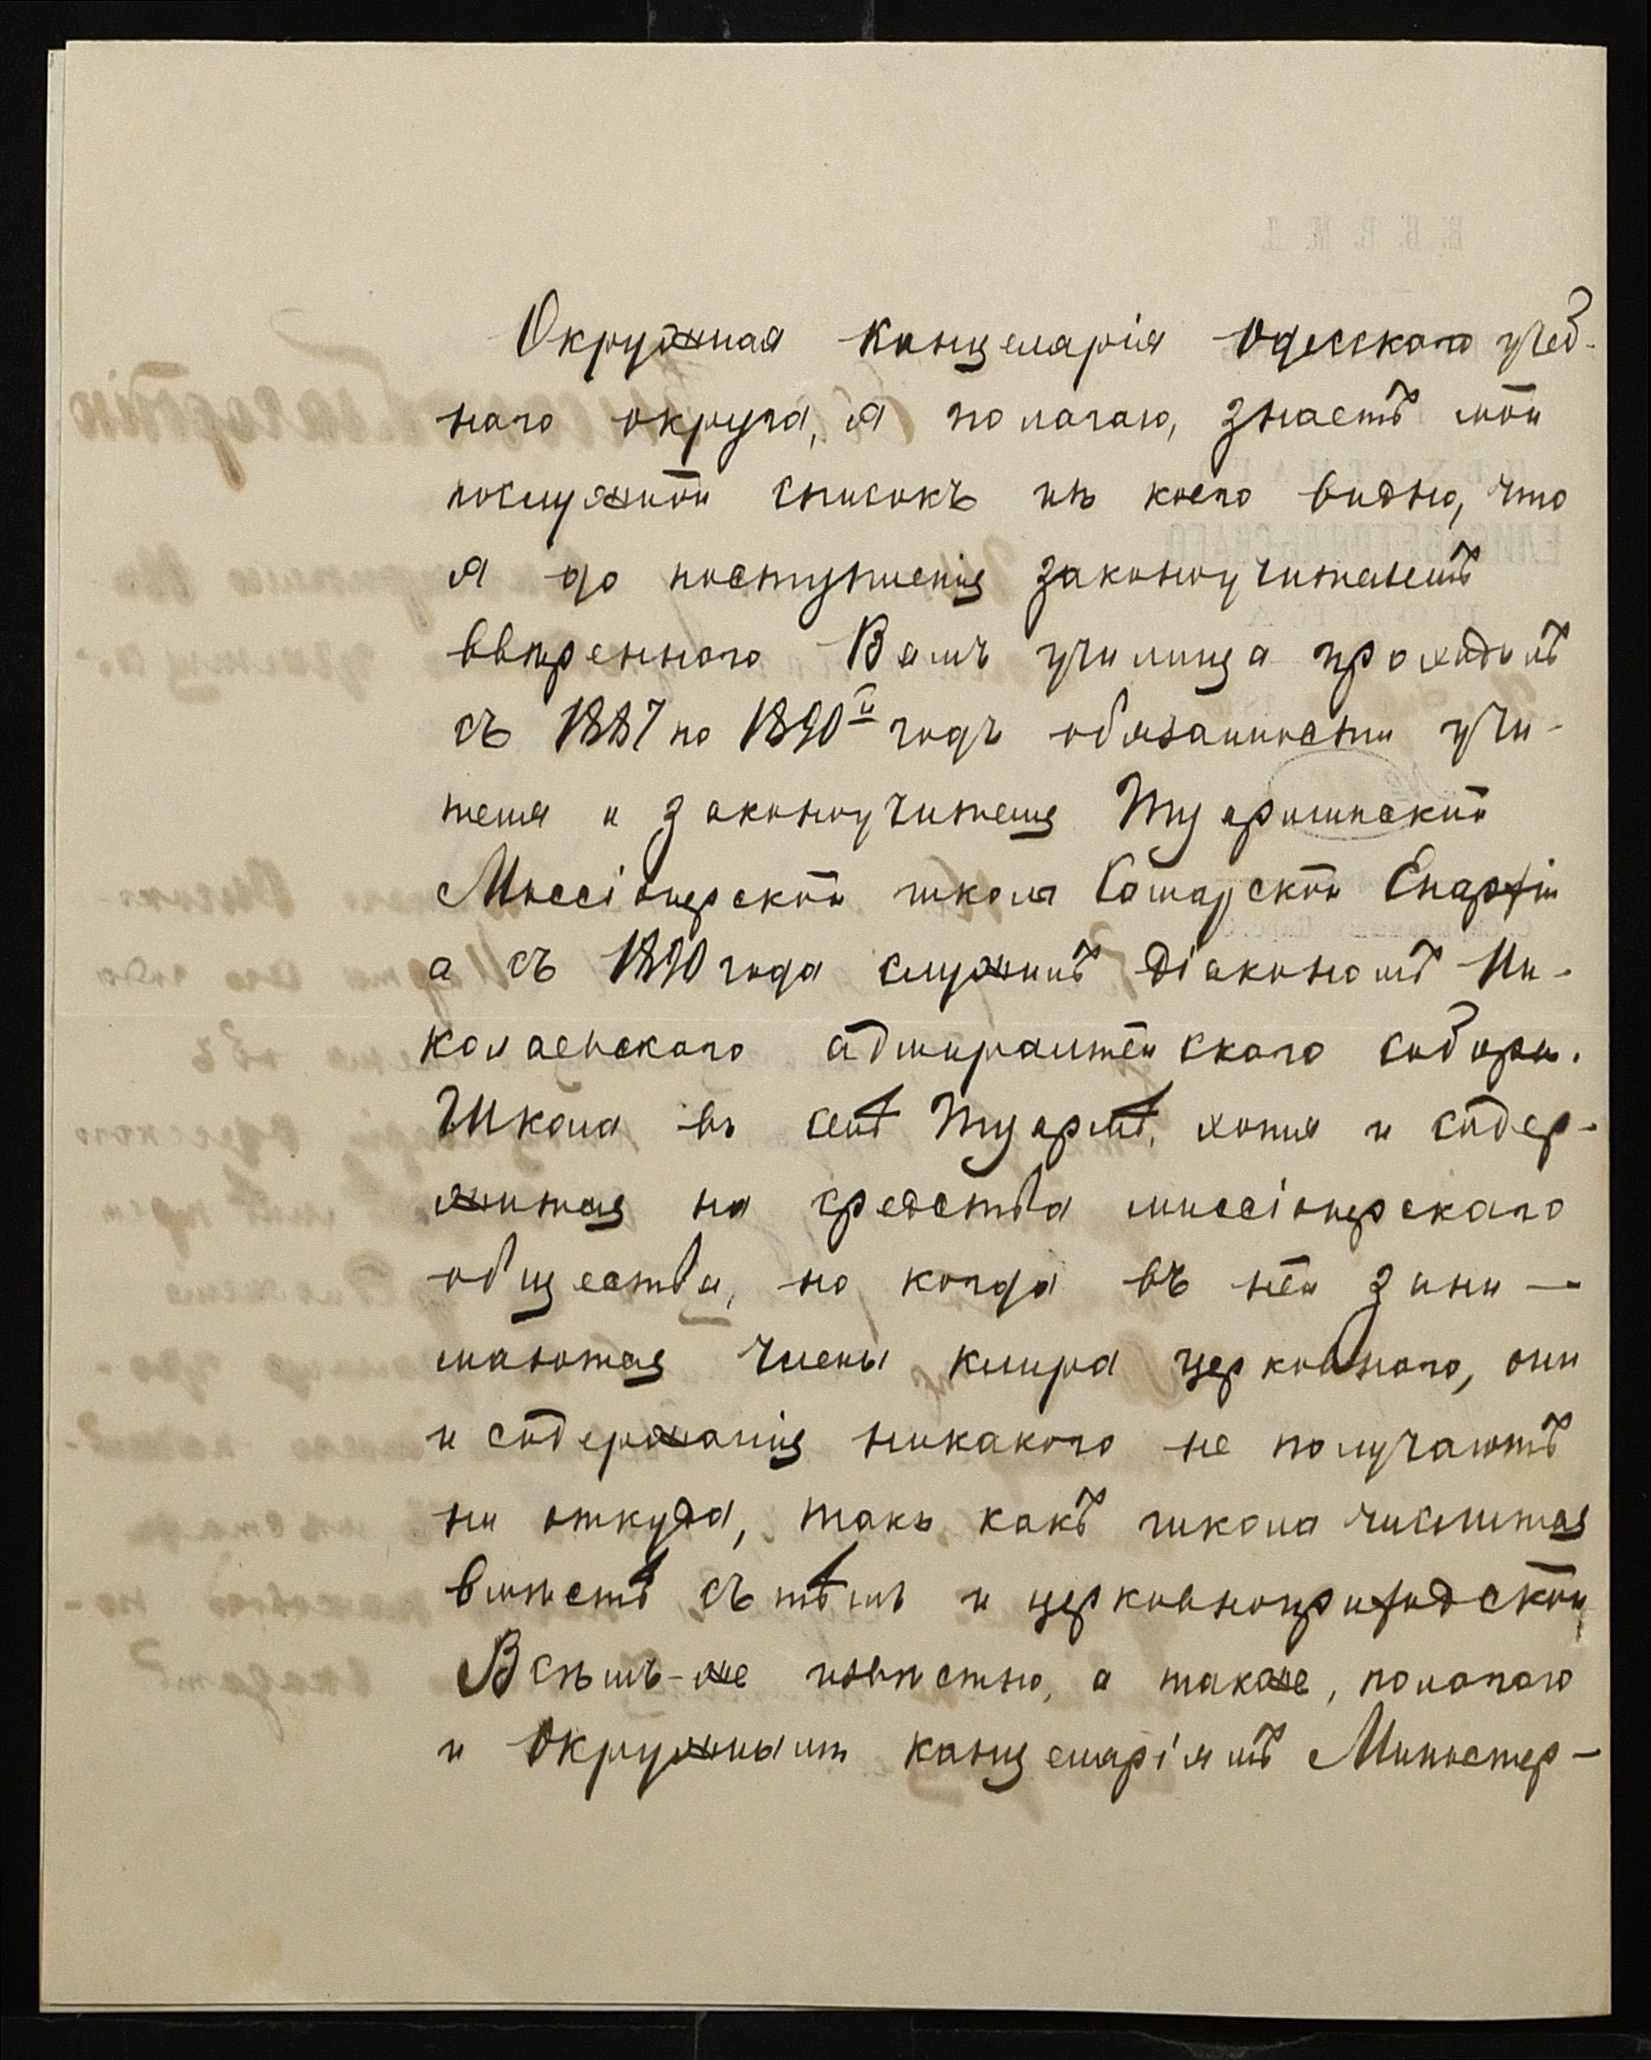 Окружная Канцелярія Одесскаго учеб-
наго округа, я полагаю, знаетъ мой
послужной списокъ изъ коего видно, что
я до поступленія законоучителемъ
ввѣреннаго Вамъ училища проходилъ
съ 1887 по 1890й годъ обязанности учи-
теля и законоучителя
Миссіонерской школы Самарской Епархіи
а съ 1890 года служилъ діакономъ Ни-
колаевскаго адмиралтейскаго собора.
Школа въ селѣ хотя и содер-
жится на средства миссіонерскаго
общества, но когда въ ней зани-
маются члены клира церковнаго, они
и содержанія никакого не получаютъ
ни откуда, такъ какъ школа числится
вмѣстѣ съ тѣмъ и церковноприходской
Всѣмъ-же извѣстно, а также, полагаю
и Окружнымъ канцеляріямъ Министер-